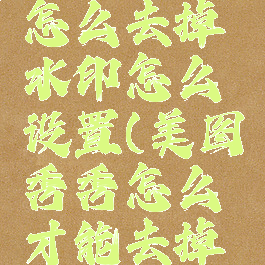 怎么去掉
水印怎么
设置(美图
秀秀怎么
才能去掉